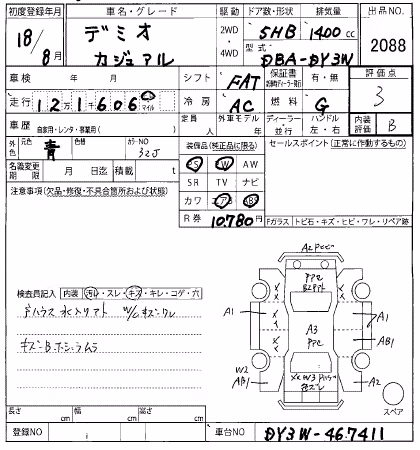 初度登録年月 車名・グレード 駆動 ドア数・形状 排気量 出品NO.
18/8月 デミオ カジュアル 2WD・4WD 5HB 1400cc 2088
型式 DBA-DY3W
車検 年 月 シフト FAT 保証書 有・無 評価点
走行 12万1千606 マイル 冷房 AC 燃料 G 3
車歴 自家用・レンタ・事業用( ) 定員 人 外車モデル 年 ディーラー・並行 ハンドル 左・右 内装評価 B
外色 元色 青 色替 カラーNO 32J 装備品(純正品に限る) セールスポイント(正常に作動するもの)
PS PW AW
名義変更期限 月 日迄 積載 t SR TV ナビ
注意事項(欠品・修復・不具合箇所および状態) カワ エアB ABS
R券 10,780円 Fガラス トビ石・キズ・ヒビ・ワレ・リペア跡
A2
検査員記入 内装 汚れ・スレ・キズ・キレ・コゲ・穴
A1 A3 A1
AB1
W2 W3
AB1 A2
スペア
長さ cm 幅 cm 高さ cm
登録NO 車台NO DY3W-467411